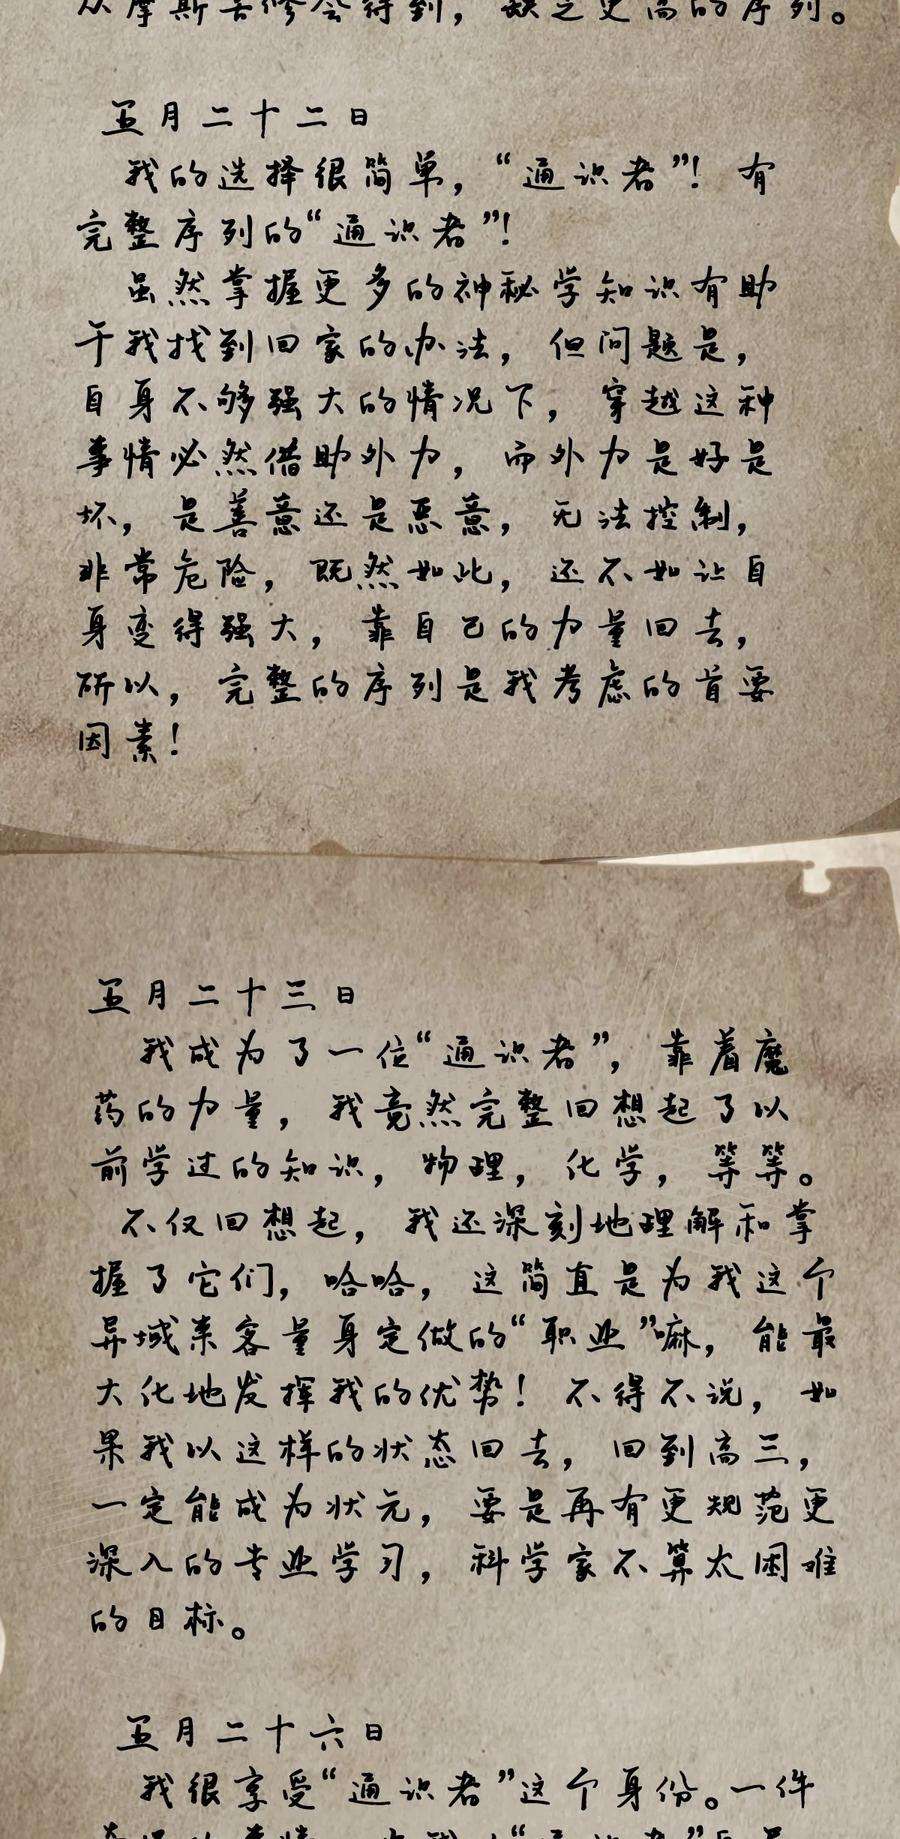 从摩斯苦修会得到，缺乏更高的序列。
五月二十二日
我的选择很简单，“通识者”！有
完整序列的“通识者”！
虽然掌握更多的神秘学知识有助
于我找到回家的办法，但问题是，
自身不够强大的情况下，穿越这种
事情必然借助外力，而外力是好是
坏，是善意还是恶意，无法控制，
非常危险，既然如此，还不如让自
身变得强大，靠自己的力量回去，
所以，完整的序列是我考虑的首要
因素！
五月二十三日
我成为了一位“通识者”，靠着魔
药的力量，我竟然完整回想起了以
前学过的知识，物理，化学，等等。
不仅回想起，我还深刻地理解和掌
握了它们，哈哈，这简直是为我这个
异域来客量身定做的“职业”嘛，能最
大化地发挥我的优势！不得不说，如
果我以这样的状态回去，回到高三，
一定能成为状元，要是再有更规范更
深入的专业学习，科学家不算太困难
的目标。
五月二十六日
我很享受“通识者”这个身份。一件